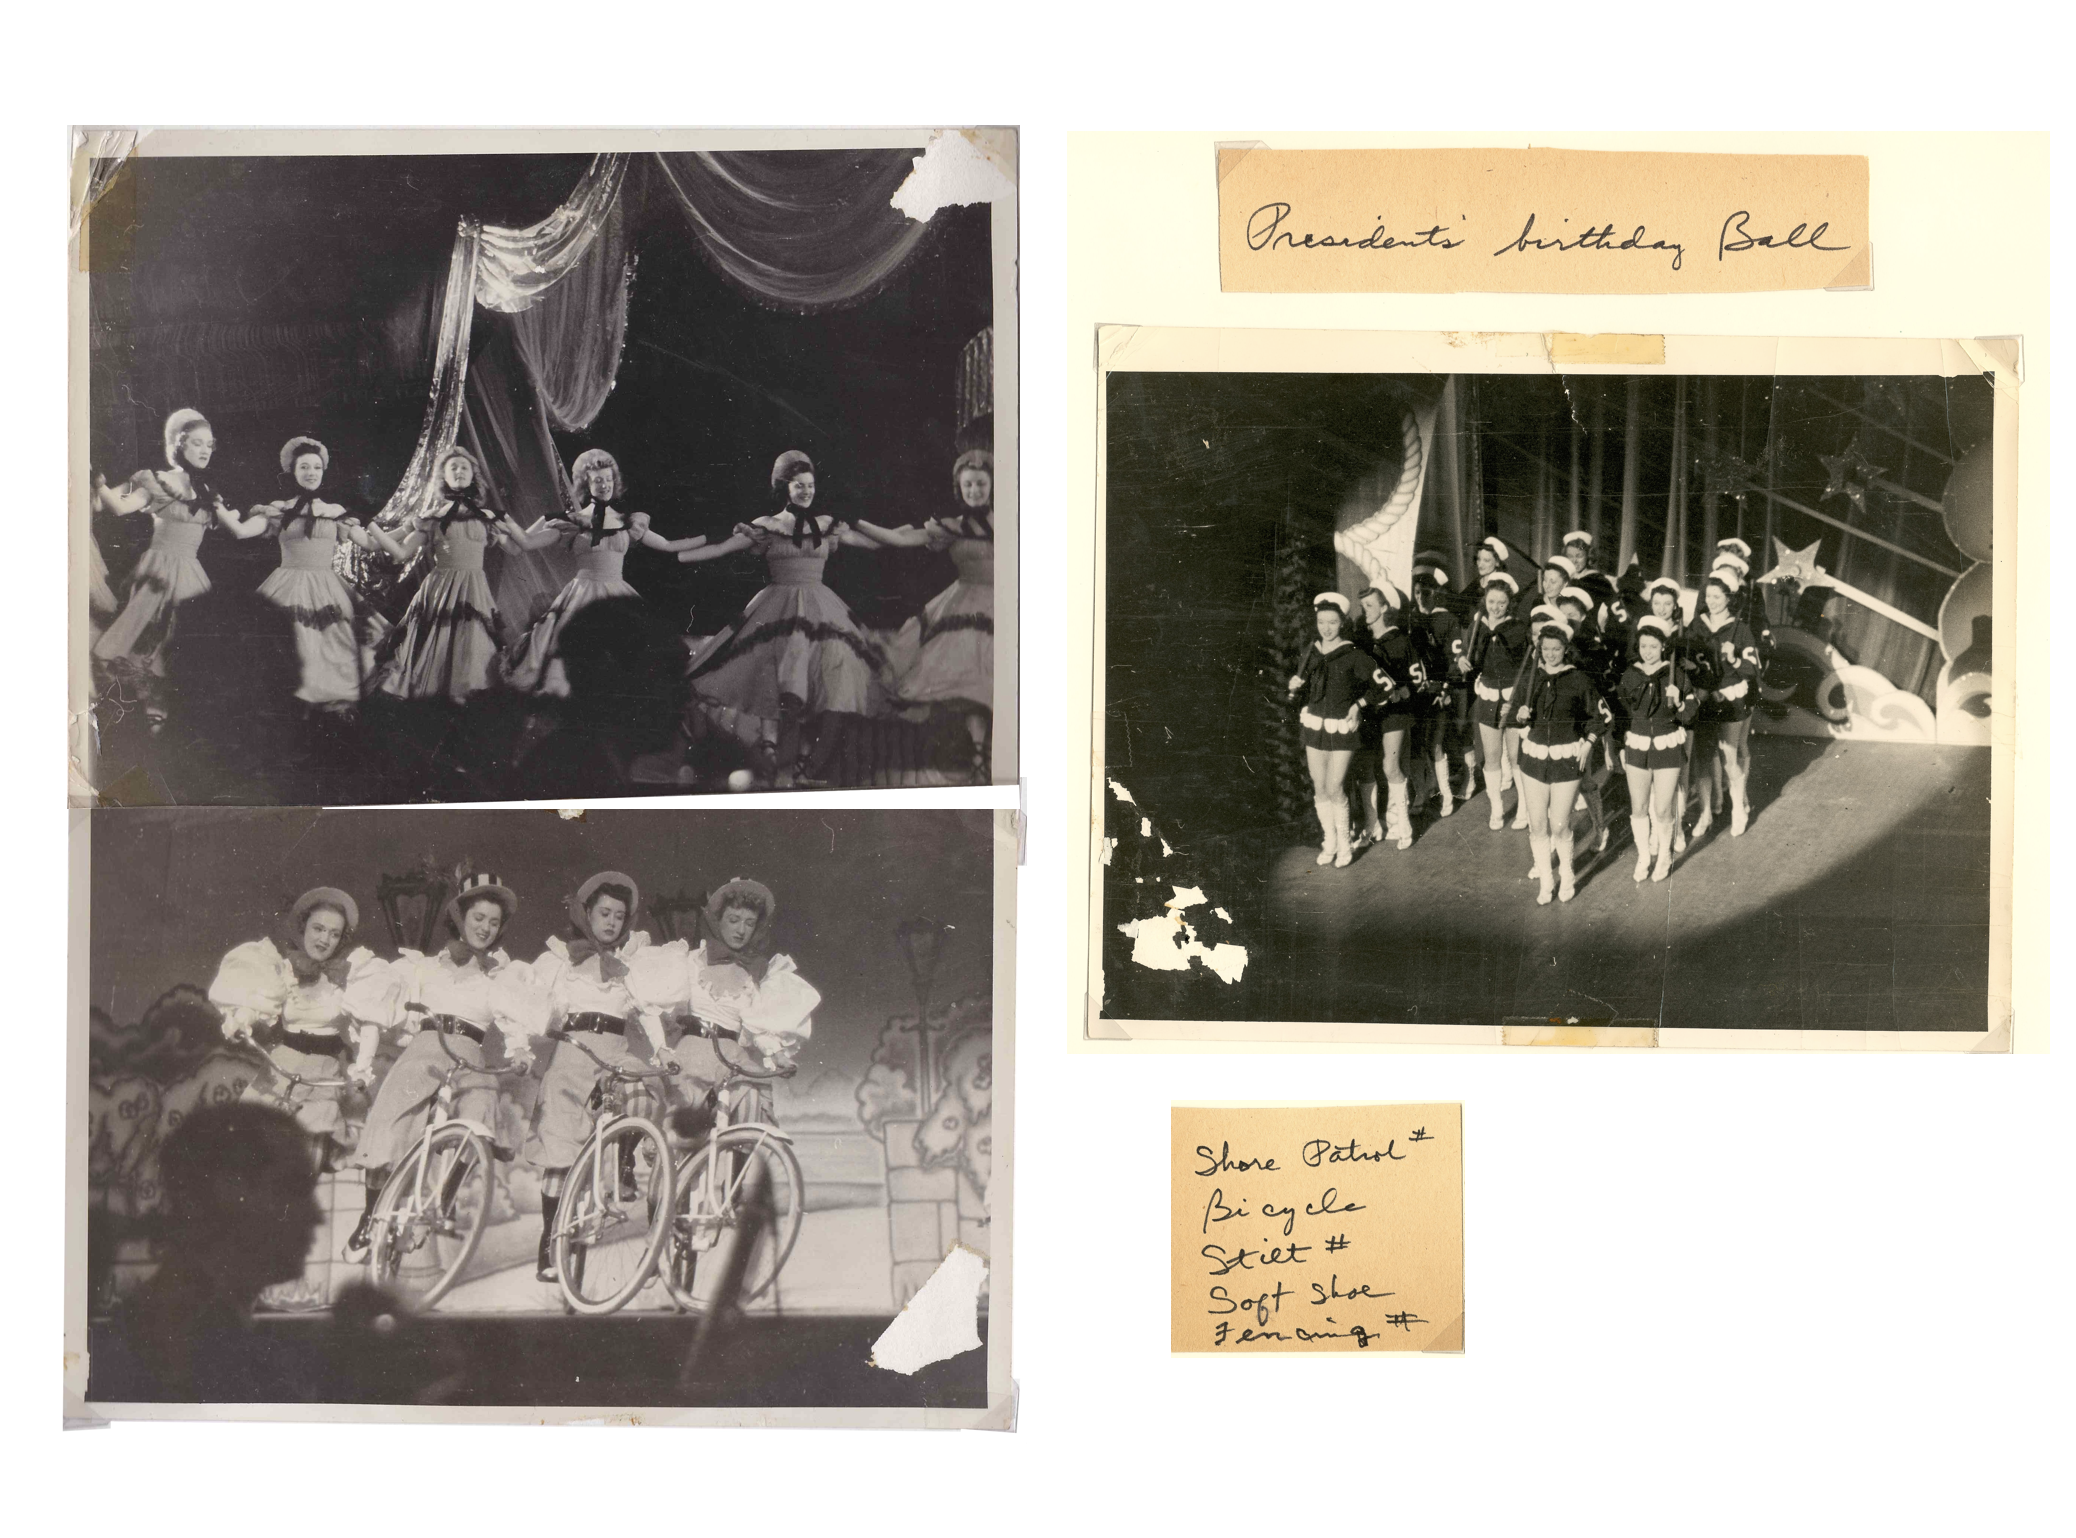 Presidents' birthday Ball
S
S
S
S
S
S
Shore Patrol #
Bicycle
Stilt #
Soft Shoe
Fencing #